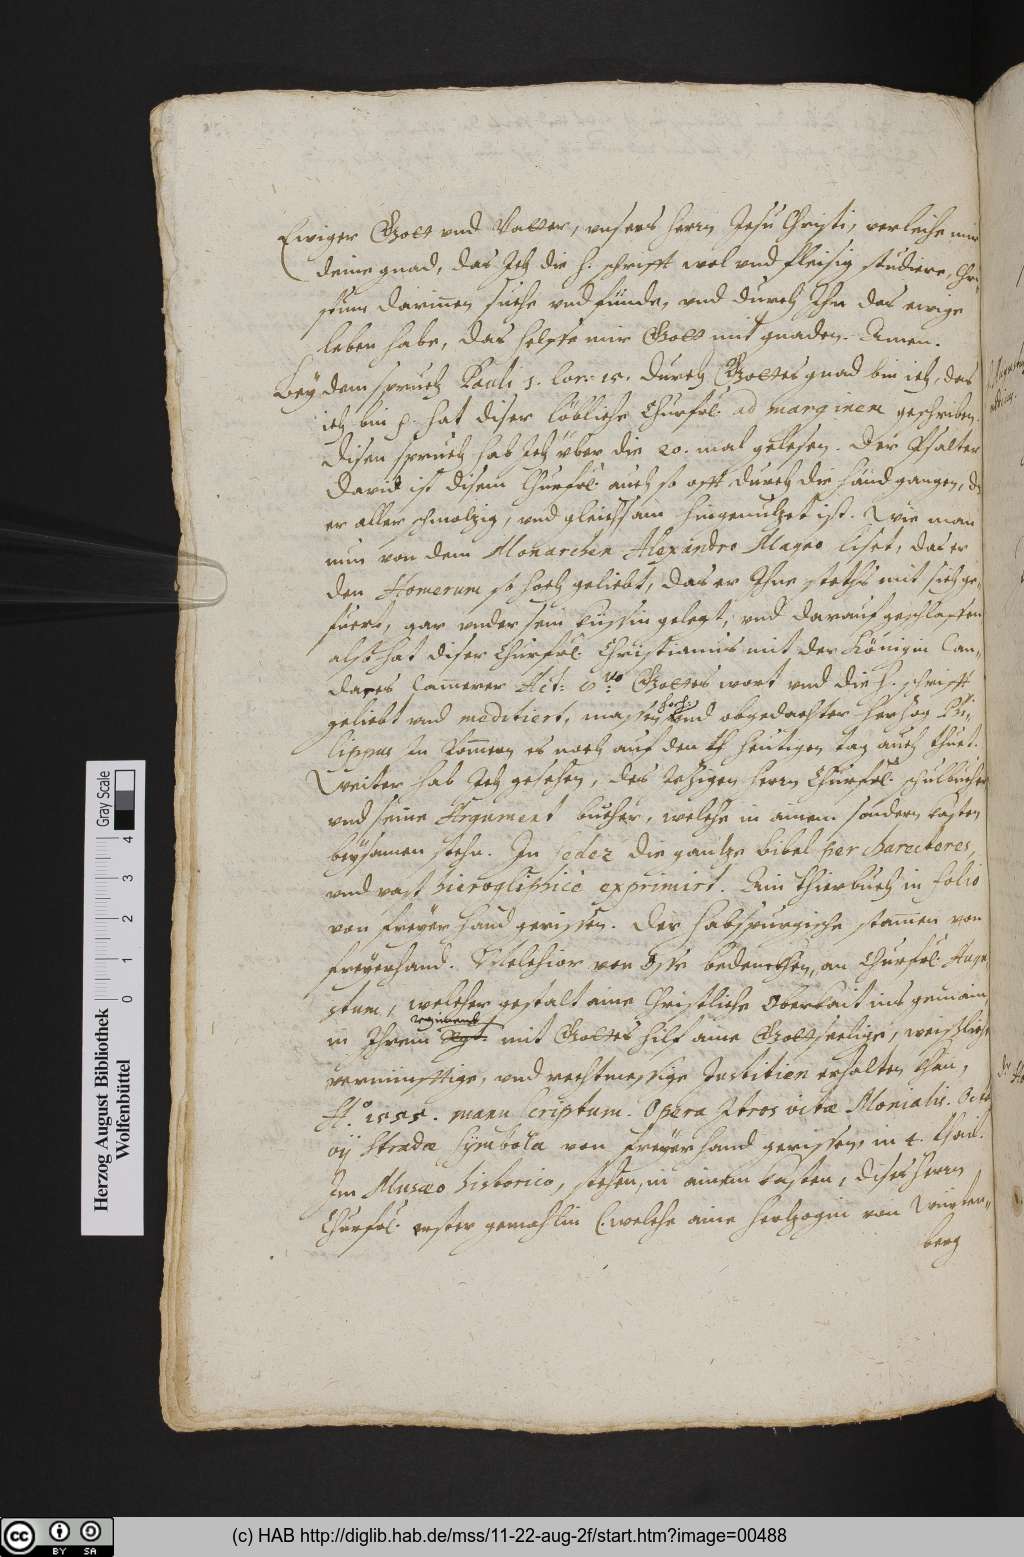 Ewiger Gott und Vatter, unsers herrn Jesu Christi, verleihe mir
deine gnad, das Ich die h. schrifft wol und fleisig studiere, Chri-
stum darinnen suche und finde, und durch Ihn das ewige
leben habe, das helffe mir Gott mit gnaden. Amen.
Bey dem spruch Pauli 1. Cor: 15. durch Gottes gnad bin ich, das
ich bin p. hat diser löbliche Churfrl. ad marginem geschriben.
disen spruch hab Ich über die 20. mal gelesen. Der Psalter
David ist disem Churfrl. auch so offt durch die händ gangen, dz
er aller schmolzig, und gleichsam hingenutzet ist. Wie man
nun von dem Monarchen Alexandro Magno liset, das er
den Homerum so hoch geliebt, das er Ihne stetths mit sich ge-
fuert, gar under sein kussin gelegt, und darauf geschlaffen
also hat diser Churfrl. Christianus mit der Königin Can-
daces Camerer Act: Gottes wort und die h. schrifft
geliebt und meditiert, massen hoch und obgedachter herzog Phi-
lippus in Pommern es noch auf den heutigen tag auch thuet.
Weiter hab Ich gesehen, des Jezigen herrn Churfrl. schulbücher
und seine Argument bücher, welche in ainem sondern kasten
beysamen stehn. In sedez die gantze bibel per charecteres,
und vast hieroglifhicè exprimirt. Ain thierbuch in folio
von freyer hand gerissen. Der habspurgische stammen von
freyerhand. Melchior von Osse bedencken, an Churfrl. Augu-
stum, welcher gestalt aine Christliche Oberkait ins gemain
in Ihrem regiment mit Gottes hilf aine Gottseelige, weißliche
vernünfftige, und rechtmessige Justitien erhalten khan,
Ao. 1555. manu scriptum. Opera Itros vitæ Monialis. Octa
vij Stradæ Symbola von freyer hand gerissen in 4. thail.
Im Musæo historico, stehen, in ainem kasten, dises herrn
Churfrl. erster gemahlin (welche aine hertzogin von Wirten-
berg
Herzog August Bibliothek
Wolfenbüttel
0 1 2 3 4
Gray Scale
CC BY SA
(c) HAB http://diglib.hab.de/mss/11-22-aug-2f/start.htm?image=00488